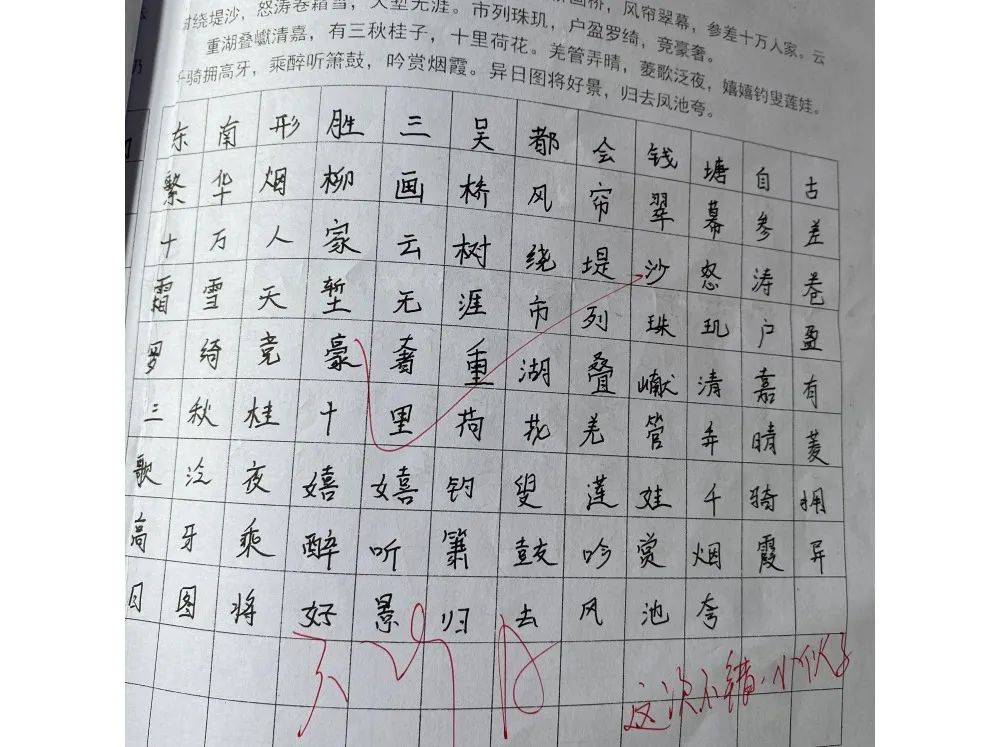 画桥，风帘翠幕，参差十万人家。云
绕堤沙，怒涛卷霜雪，天堑无涯。市列珠玑，户盈罗绮，竞豪奢。
重湖叠巘清嘉，有三秋桂子，十里荷花。羌管弄晴，菱歌泛夜，嬉嬉钓叟莲娃。
千骑拥高牙，乘醉听箫鼓，吟赏烟霞。异日图将好景，归去凤池夸。
东南形胜三吴都会钱塘自古
繁华烟柳画桥风帘翠幕参差
十万人家云树绕堤沙怒涛卷
霜雪天堑无涯市列珠玑户盈
罗绮竞豪奢重湖叠巘清嘉有
三秋桂十里荷花羌管弄晴菱
歌泛夜嬉嬉钓叟莲娃千骑拥
高牙乘醉听箫鼓吟赏烟霞异
日图将好景归去风池夸
这次不错，小伙子